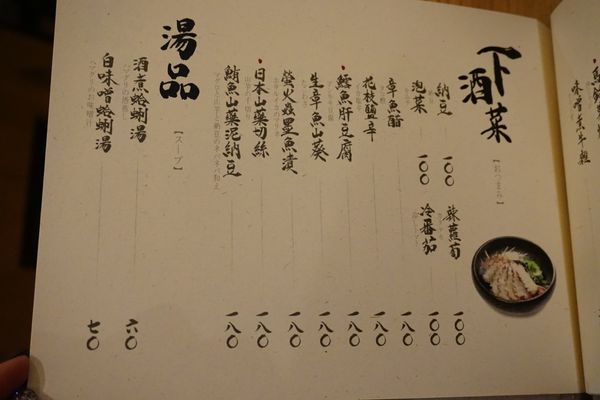 下酒菜
【おつまみ】
納豆 一〇〇
辣蘿蔔 一〇〇
泡菜 一〇〇
冷番茄 一〇〇
章魚醋 一八〇
花枝鹽辛 一八〇
鱈魚肝豆腐 一八〇
生章魚山葵 一八〇
螢火蟲墨魚漬 一八〇
日本山藥切絲 一八〇
鮪魚山藥泥納豆 一八〇
湯品
【スープ】
酒煮蛤蜊湯 六〇
白味噌蛤蜊湯 七〇